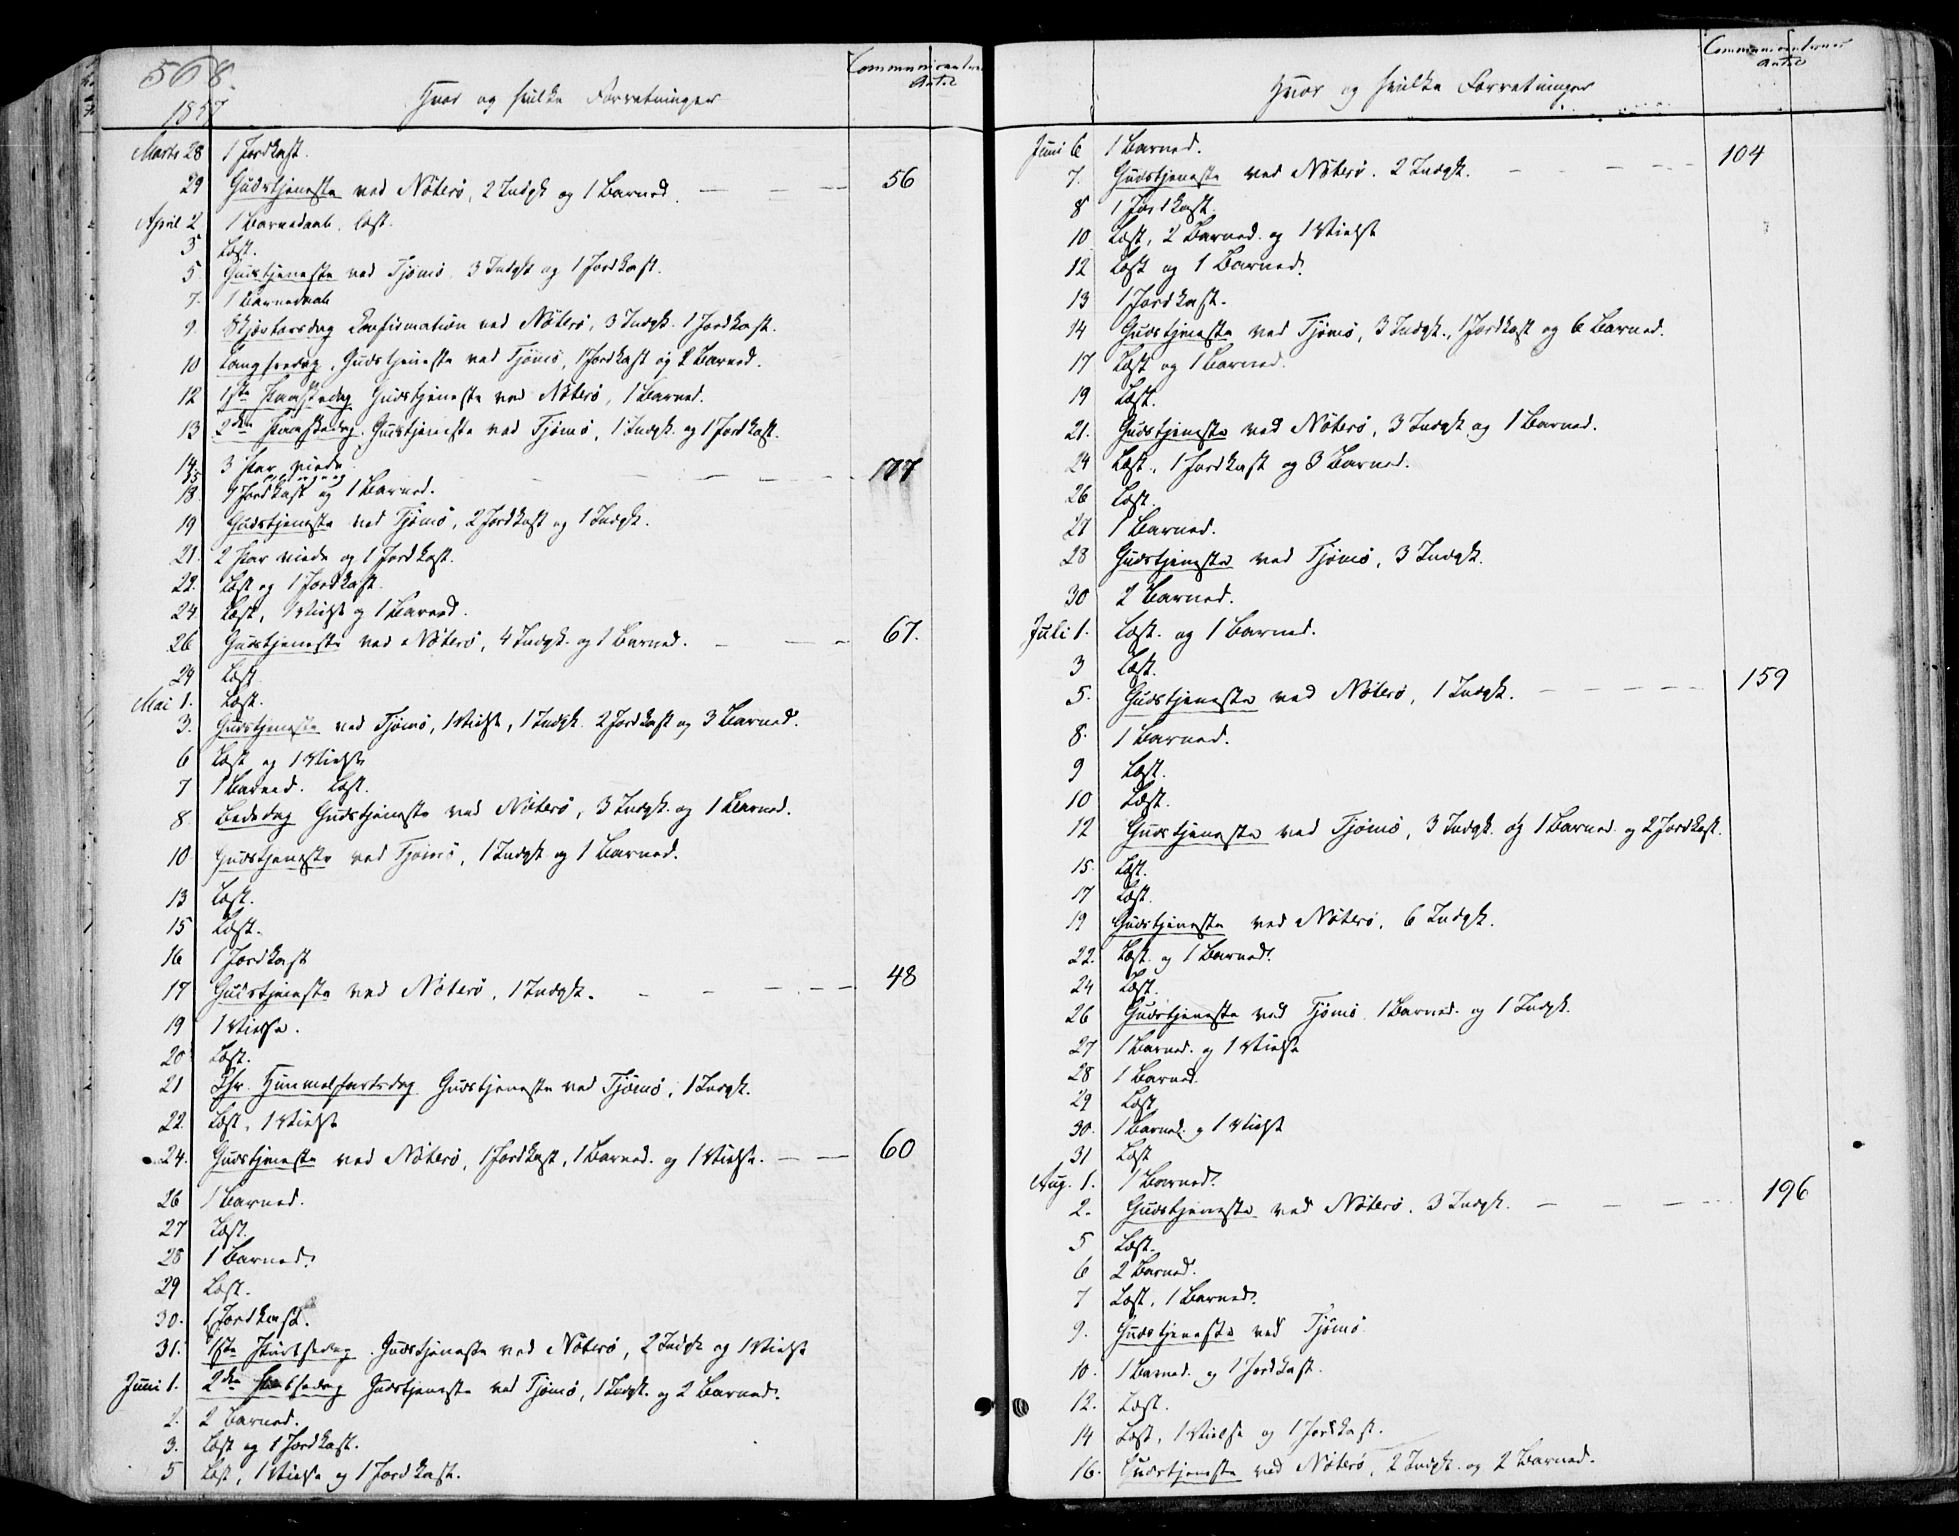 568.
1857
Hvor og hvilke Forretninger
Communicanternes Antal
Marts 28 1 Jordkast.
29 Gudstjeneste ved Nöterö, 2 Indgk og 1 Barned. 56
April 2 1 Barnedaab. Læst.
3 Læst.
5 Gudstjeneste ved Tjömö 3 Indgk og 1 Jordkast.
7. 1 Barnedaab
9. Skjærtorsdag Confirmation ved Nöterö, 3 Indgk. 1 Jordkast.
10 Langfredag. Gudstjeneste ved Tjömö, 1 Jordkast og 2 Barned.
12 1ste Paaskedag Gudstjeneste ved Nöterö, 1 Barned.
13 2den Paaskedag. Gudstjeneste ved Tjömö, 1 Indgk. og 1 Jordkast.
14 3 Par viede.
15 177
18 1 Jordkast og 1 Barned.
19 Gudstjeneste ved Tjömö, 2 Jordkast og 1 Indgk.
21. 2 Par viede og 1 Jordkast.
22. Læst og 1 Jordkast.
24 Læst, 1 Vielse og 1 Barned.
26 Gudstjeneste ved Nöterö, 4 Indgk. og 1 Barned. 67.
29 Læst.
Mai 1. Læst.
3. Gudstjeneste ved Tjömö, 1 Vielse, 1 Indgk. 2 Jordkast og 3 Barned.
6 Læst og 1 Vielse
7 1 Barned. Læst.
8. Bededag Gudstjeneste ved Nöterö, 3 Indgk. og 1 Barned.
10. Gudstjeneste ved Tjömö, 1 Indgk og 1 Barned.
13 Læst.
15 Læst.
16 1 Jordkast
17 Gudstjeneste ved Nöterö, 1 Indgk. 48
19 1 Vielse.
20 Læst.
21 Chr. Himmelfartsdag Gudstjeneste ved Tjömö, 1 Indgk.
22. Læst, 1 Vielse
24. Gudstjeneste ved Nöterö, 1 Jordkast, 1 Barned. og 1 Vielse. 60
26 1 Barned.
27 Læst.
28 1 Barned.
29 Læst.
30. 1 Jordkast.
31. 1ste Pintsedag. Gudstjeneste ved Nöterö, 2 Indgk og 1 Vielse
Juni 1. 2den Pintsedag Gudstjeneste ved Tjömö, 1 Indgk. og 2 Barned.
2. 2 Barned.
3. Læst og 1 Jordkast.
5 Læst, 1 Vielse og 1 Jordkast.
Hvor og hvilke Forretninger
Communicanternes Antal
Juni 6 1 Barned.
7. Gudstjeneste ved Nöterö. 2 Indgk. 104
8 1 Jordkast.
10 Læst, 2 Barned. og 1 Vielse
12 Læst og 1 Barned.
13 1 Jordkast.
14 Gudstjeneste ved Tjömö, 3 Indgk., 1 Jordkast og 6 Barned.
17 Læst og 1 Barned.
19 Læst.
21. Gudstjeneste ved Nöterö, 3 Indgk og 1 Barned.
24 Læst., 1 Jordkast og 3 Barned.
26 Læst.
27 1 Barned.
28 Gudstjeneste ved Tjömö, 3 Indgk.
30 2 Barned.
Juli 1. Læst. og 1 Barned.
3 Læst.
5. Gudstjeneste ved Nöterö, 1 Indgk. 159
8. 1 Barned.
9 Læst.
10 Læst.
12 Gudstjeneste ved Tjömö, 3 Indgk. og 1 Barned. og 2 Jordkast.
15. Læst.
17 Læst.
19 Gudstjeneste ved Nöterö, 6 Indgk.
22. Læst. og 1 Barned.
24 Læst.
26 Gudstjeneste ved Tjömö 1 Barned. og 1 Indgk.
27 1 Barned. og 1 Vielse
28 1 Barned.
29 Læst
30. 1 Barned. og 1 Vielse
31 Læst
Aug. 1. 1 Barned.
2. Gudstjeneste ved Nöterö. 3 Indgk. 196
5 Læst.
6 2 Barned.
7 Læst, 1 Barned.
9. Gudstjeneste ved Tjömö
10. 1 Barned. og 1 Jordkast.
12. Læst.
14 Læst, 1 Vielse og 1 Jordkast.
16. Gudstjeneste ved Nöterö, 2 Indgk. og 2 Barned.